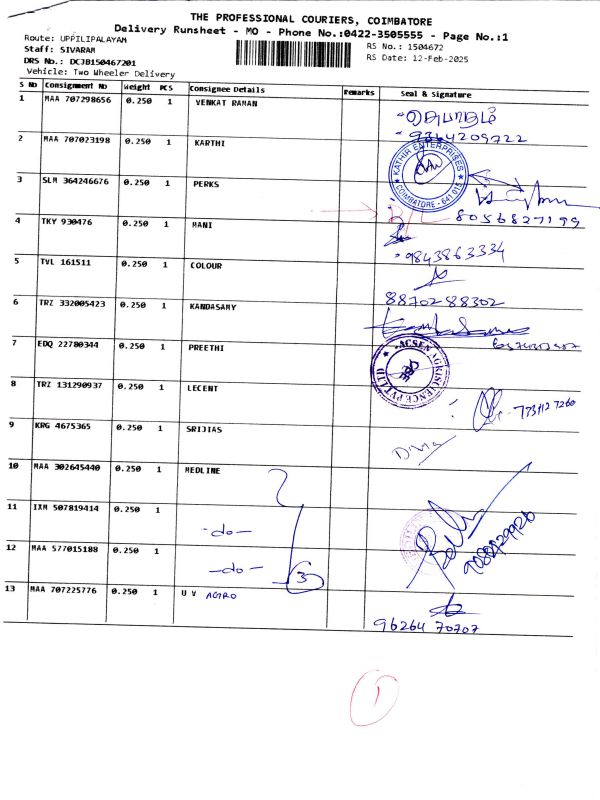 THE PROFESSIONAL COURIERS, COIMBATORE
Delivery Runsheet - MO - Phone No.:0422-3505555 - Page No.:1
Route: UPPILIPALAYAM
RS No.: 1504672
Staff: SIVARAM
RS Date: 12-Feb-2025
DRS No.: DCJB150467201
Vehicle: Two Wheeler Delivery
S No Consignment No Weight PCS Consignee Details Remarks Seal & Signature
1 MAA 707298656 0.250 1 VENKAT RAMAN
2 MAA 707023198 0.250 1 KARTHI
KATHIR ENTERPRISES
COIMBATORE - 641 015
3 SLM 364246676 0.250 1 PERKS
8056827199
4 TKY 930476 0.250 1 MANI
9843863334
5 TVL 161511 0.250 1 COLOUR
88702 88302
6 TRZ 332005423 0.250 1 KANDASAMY
7 EDQ 22780344 0.250 1 PREETHI
ACSEN AGRISCIENCE PVT LTD
8 TRZ 131290937 0.250 1 LECENT
9 KRG 4675365 0.250 1 SRIJIAS
Divya
10 MAA 302645440 0.250 1 MEDLINE
11 IXM 507819414 0.250 1 -do-
12 MAA 577015188 0.250 1 -do- 3
13 MAA 707225776 0.250 1 U V AGRO
96264 70707
1